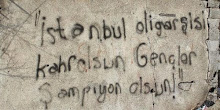 "İstanbul oligarşisi
kahrolsun Gençler
şampiyon olsun!"